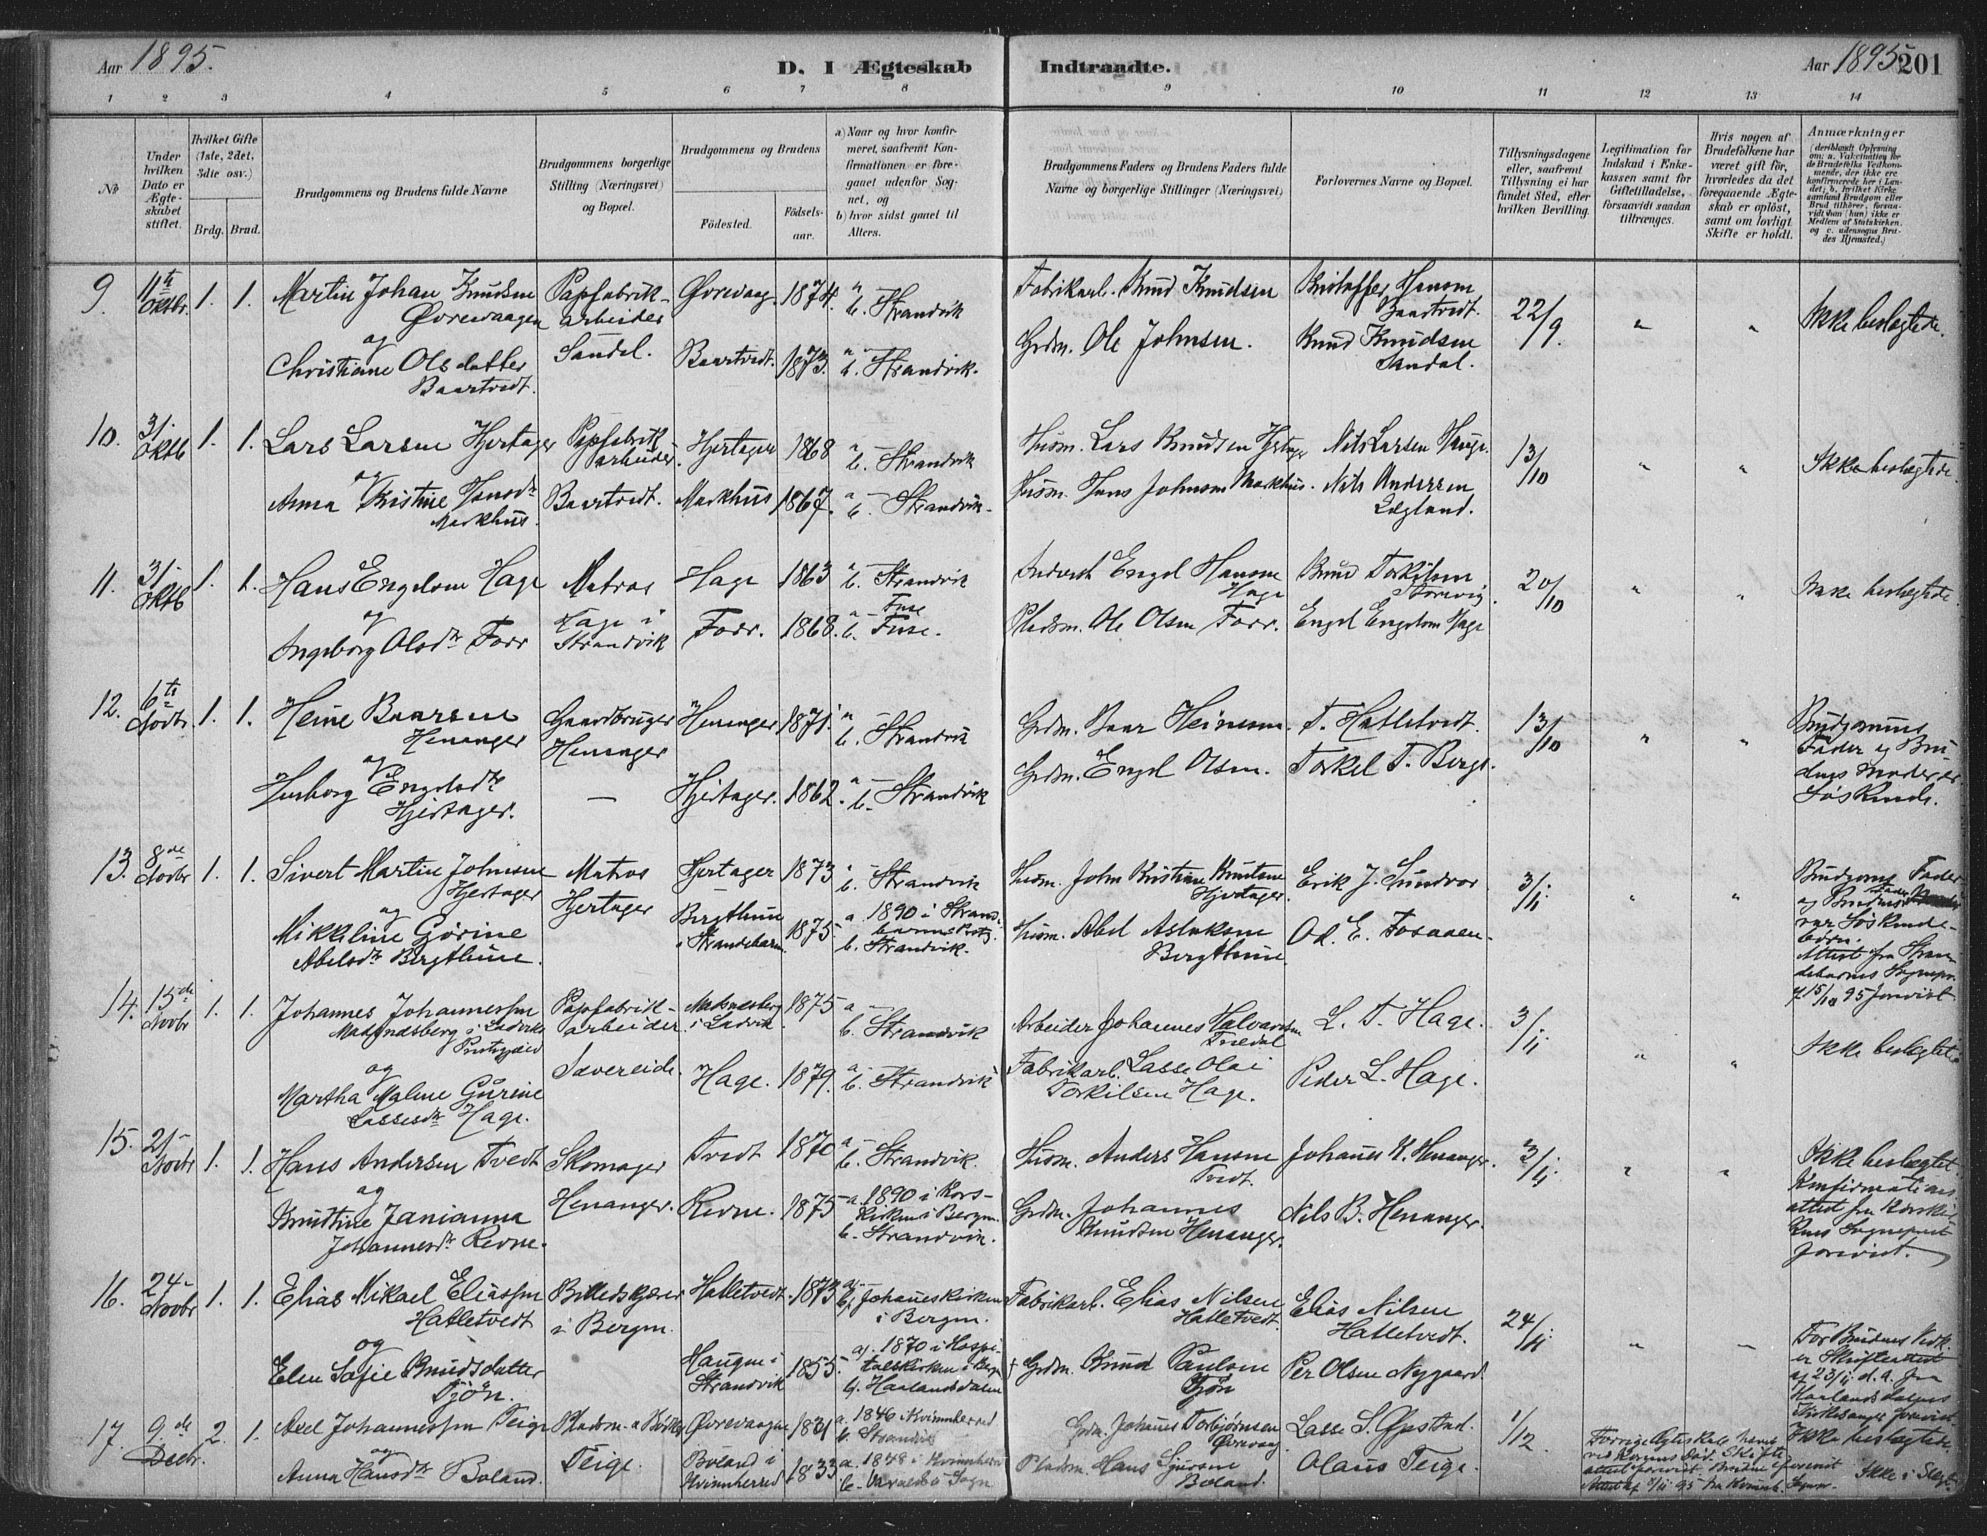 Aar 1895.
D. I Ægteskab Indtraadte.
Aar 1895 201
1 2 3 4 5 6 7 8 9 10 11 12 13 14
No
Under hvilken Dato er Ægteskabet stiftet.
Hvilket Gifte (1ste, 2det, 3die osv.)
Brdg. Brud.
Brudgommens og Brudens fulde Navne
Brudgommens borgerlige Stilling (Næringsvei) og Bopæl.
Brudgommens og Brudens
Fødested. Fødselsaar.
a) Naar og hvor konfirmeret, saafremt Konfirmationen er foregaaet udenfor Sognet, og
b) hvor sidst gaaet til Alters.
Brudgommens Faders og Brudens Faders fulde Navne og borgerlige Stillinger (Næringsvei)
Forlovernes Navne og Bopæl.
Tillysningsdagene eller, saafremt Tillysning ei har fundet Sted, efter hvilken Bevilling.
Legitimation for Indskud i Enkekassen samt for Giftetilladelse, forsaavidt saadan tiltrænges.
Hvis nogen af Brudefolkene har været gift før, hvorledes da det foregaaende Ægteskab er opløst, samt om lovligt Skifte er holdt.
Anmærkninger
9. 11te Oktbr. 1. 1. Martin Johan Knudsen Øvrevaagen
og
Christiane Olsdatter Baartvedt.
Papfabrikarbeider Sandal.
Øvrevaag. 1874. a b. Strandvik
Baartvedt. 1873. a b. Strandvik.
Fabrikarb. Knud Knudsen
Grdm. Ole Johnsen.
Kristoffer Hansen Baartvedt.
Knud Knudsen Sandal.
22/9.
Ikke beslægtede.
10. 31. Oktb 1. 1. Lars Larsen Hjertager
og
Anna Kristine Jensdtr Markhus.
Papfabrikarbeider. Baartvedt.
Hjertager 1868 a b. Strandvik
Markhus 1867. a b. Strandvik.
Husm. Lars Knudsen Hjertager
Husm. Jens Johnsen Markhus.
Nils Larsen Hauge.
Nils Andersen Lægland.
13/10
Ikke beslægtede.
11. 31. Oktb 1. 1. Hans Engelsen Hage
og
Ingeborg Olsdtr Forr
Matros Hage i Strandvik
Hage 1863 a b. Strandvik
Forr. 1868. a Fuse b. Fuse.
Engel Hansen Hage
Pladsm. Ole Olsen Forr.
Knud Torkilsen
Engel Engelsen Hage
20/10
Ikke beslægtede.
12. 6te Novbr 1. 1. Heine Baarsen Henanger
og
Engelsdtr Hjertager.
Gaardbruger Henanger
—
Henanger 1871. a b. Strandvik
Hjertager. 1862. a b. Strandvik
Grdm. Baar Heinesen
Grdm. Engel Olsen.
T. Hatletvedt.
Torkel T. Berge.
13/10
Brudgommens Fader og Brudens Moder er Søskende.
13. 8de Novbr 1. 1. Sivert Martin Johnsen Hjertager
og
Mikkeline Gørine Abelsdtr Bergthun.
Matros Hjertager
Hjertager 1873 a b. Strandvik
Bergthun i Strandebarm 1875 a. 1890 i Strandebarm b. Strandvik.
Husm. John Kristian Knutsen Hjertager.
Husm. Abel Aslaksen Bergthun.
Erik J. Sundvor
Od. E. Fosaaen
3/11
Brudgoms Fader og Brudens Fader var Søskendebørn.
Attest fra Strandebarms Sognepr. af 15/10 95 forevist.
14. 15de Novbr 1. 1. Johannes Johannessen Madsnæsberg i Ladviks Prstgjæld
og
Martha Malene Gurine Lassesdtr Hage.
Papfabrikarbeider. Sævereide.
Madsnæsberg i Ladvik. 1875 a b. Strandvik
Hage. 1879. a b. Strandvik
Arbeider Johannes Halvorsen
Fabrikarb. Lasse Olai Torkilsen Hage.
L. T. Hage.
Peder L. Hage.
3/11
Ikke beslægtet.
15. 21. Novbr 1. 1. Hans Andersen Tvedt
og
Knudtine Janianna Johannesdtr Revne.
Skomager Henanger.
Tvedt 1870 a b. Strandvik.
Revne. 1875 a. 1890 i Korskirken i Bergen. b. Strandvik.
Husm. Anders Hansen Tvedt.
Grdm. Johannes Knudsen Henanger.
Johannes K. Henanger.
Nils B. Henanger.
3/11
Ikke beslægtet.
Konfirmationsattest fra Korskirkens Sogneprest forevist.
16. 24. Novbr 1. 1. Elias Mikael Eliassen Hatletvedt
og
Elen Sofie Knudsdatter Tjøn.
Billedskjærer i Bergen.
Hatletvedt. 1873 Johaneskirken i Bergen.
Haugen i Strandvik 1855. a. 1870 i Hospitalskirken i Bergen b. Haalandsdalen
Fabrikarb. Elias Nilsen Hatletvedt.
Grdm. Knud Paulsen Tjøn
Elias Nilsen Hatletvedt.
Per Olsen Nygaard
24/11
—
17. 9de Decbr. 2. 1. Axel Johannessen Teige
og
Anna Hansdtr Boland.
Teige.
Øvrevaagen 1831 a. 1846 i Kvinnherred b. Strandvik
Boland i Kvinnherred 1833 a. 1848 i Kvinnherred b. Sogn
Grdm. Johannes Torbjørnsen Øvrevaag
Pladsm. Hans Sjursen Boland.
Lasse S. Øpstad.
Olaus Teige.
1/12
Ikke beslægtede.
Ikke i Slegt.